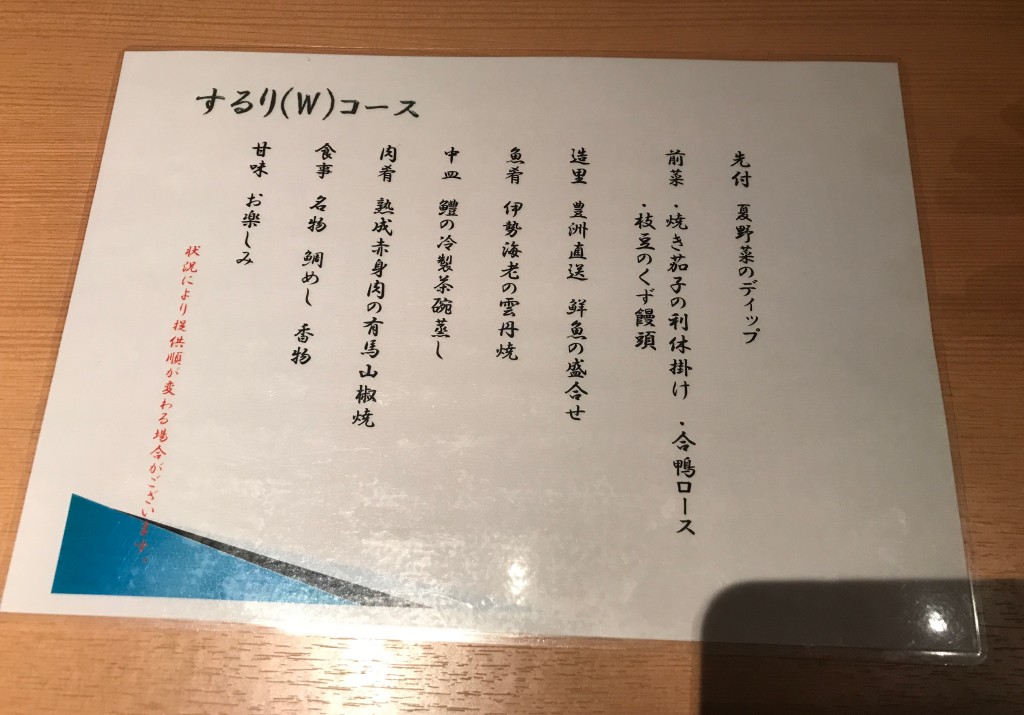 するり(W)コース
先付 夏野菜のディップ
前菜 ・焼き茄子の利休掛け ・合鴨ロース
・枝豆のくず饅頭
造里 豊洲直送 鮮魚の盛合せ
魚肴 伊勢海老の雲丹焼
中皿 鱧の冷製茶碗蒸し
肉肴 熟成赤身肉の有馬山椒焼
食事 名物 鯛めし 香物
甘味 お楽しみ
状況により提供順が変わる場合がございます。